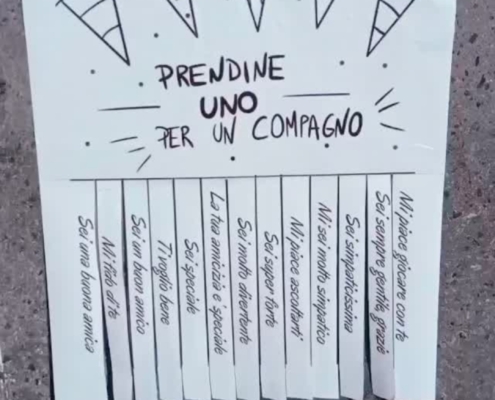 PRENDINE
UNO
PER UN COMPAGNO
Sei una buona amica
Mi fido di te
Sei un buon amico
Ti voglio bene
Sei speciale
La tua amicizia è speciale
Sei molto divertente
Sei super forte
Mi piace ascoltarti
Mi sei molto simpatico
Sei simpaticissima
Sei sempre gentile, grazie
Mi piace giocare con te